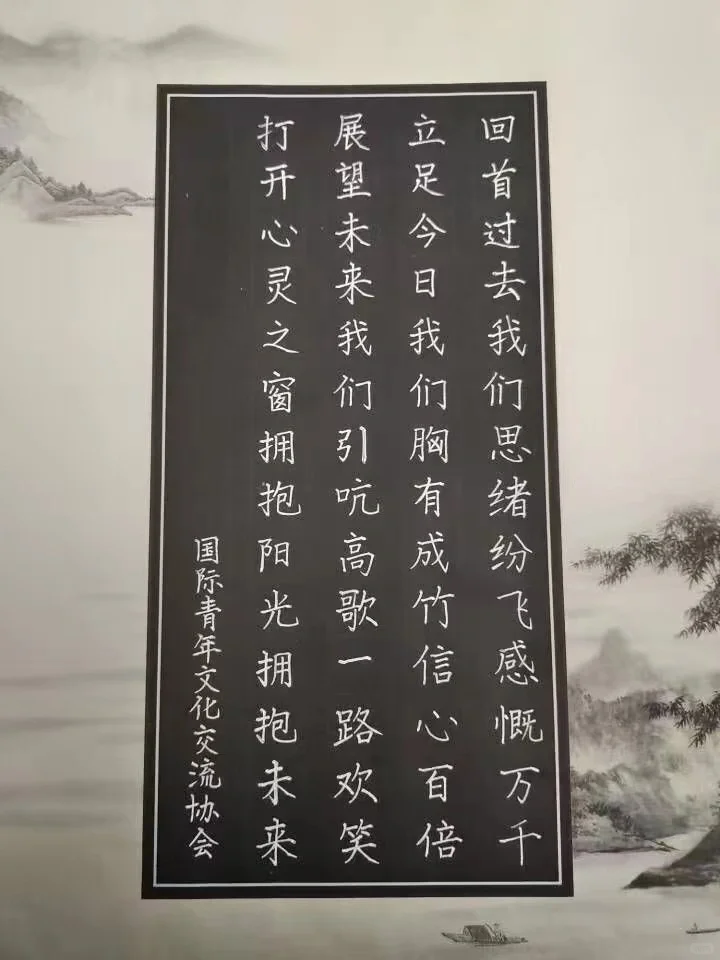 回首过去我们思绪纷飞感慨万千
立足今日我们胸有成竹信心百倍
展望未来我们引吭高歌一路欢笑
打开心灵之窗拥抱阳光拥抱未来
国际青年文化交流协会